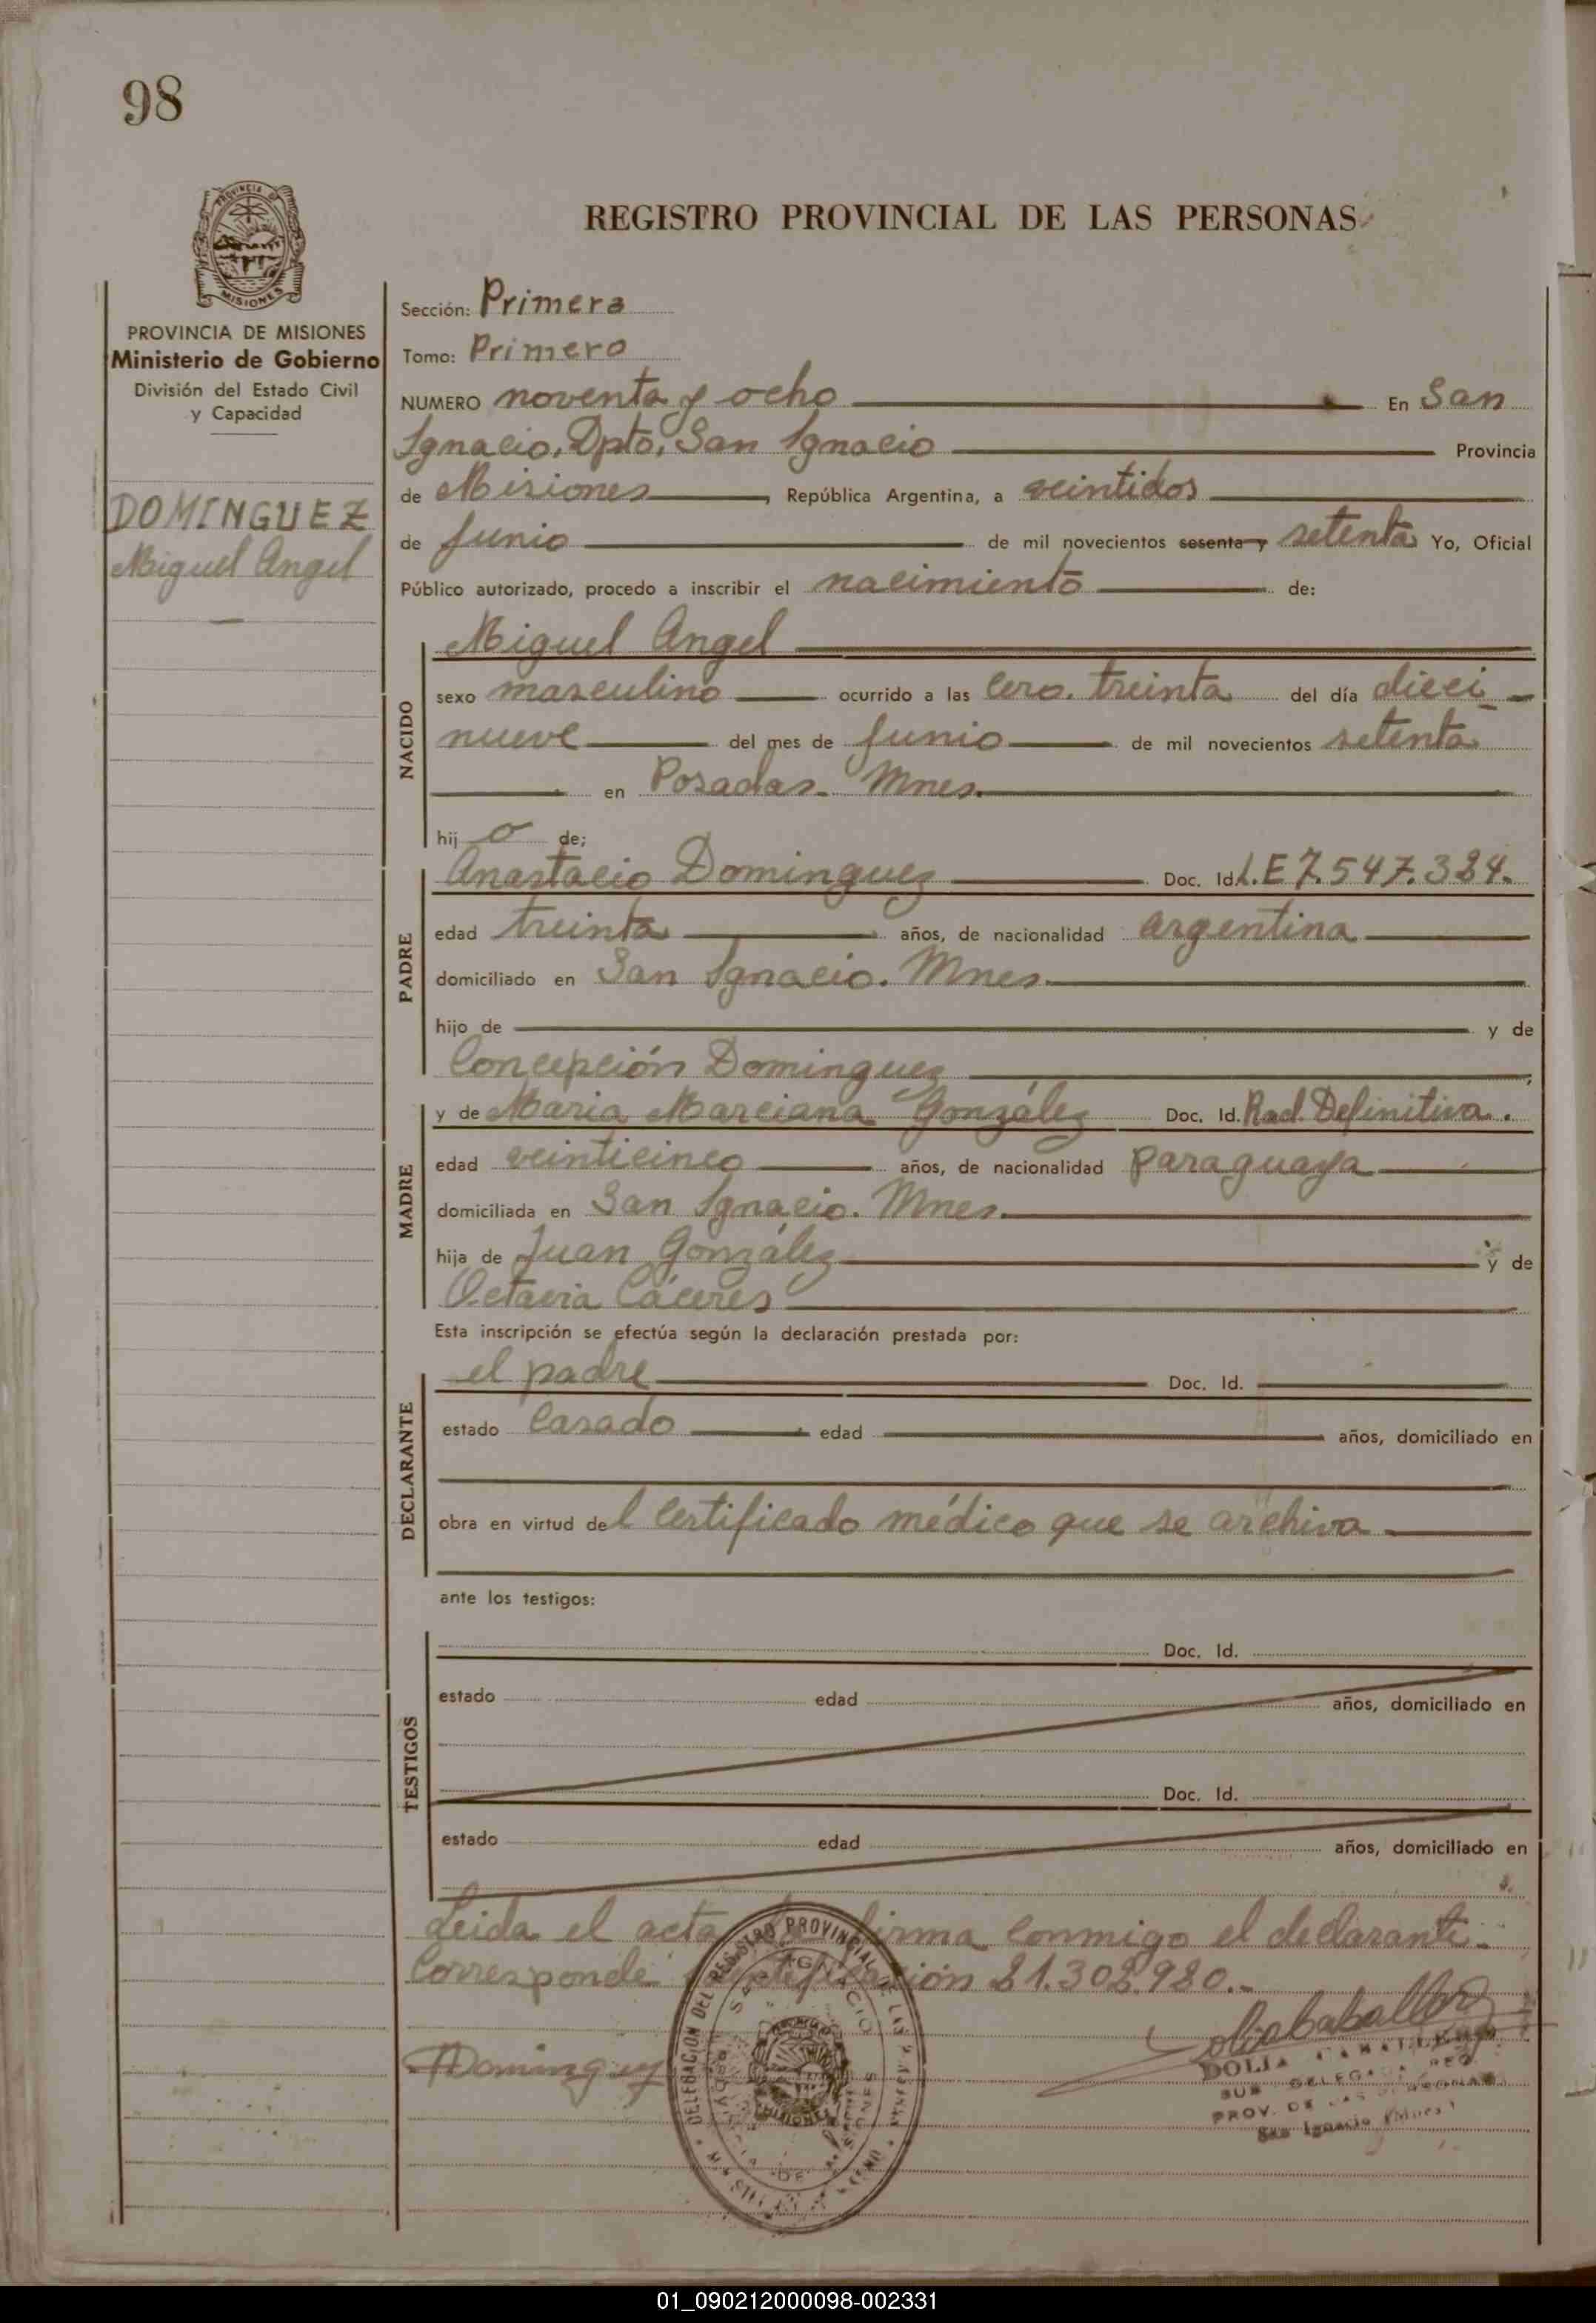 98
PROVINCIA DE MISIONES
Ministerio de Gobierno
División del Estado Civil
y Capacidad
DOMINGUEZ
Miguel Angel
REGISTRO PROVINCIAL DE LAS PERSONAS
Sección: Primera
Tomo: Primero
NUMERO noventa y ocho En San
Ignacio, Dpto. San Ignacio Provincia
de Misiones, República Argentina, a veintidos
de Junio de mil novecientos sesenta y setenta Yo, Oficial
Público autorizado, procedo a inscribir el nacimiento de:
NACIDO
Miguel Angel
sexo masculino ocurrido a las cero. treinta del día dieci-
nueve del mes de Junio de mil novecientos setenta
en Posadas. Mnes.
hijo de;
PADRE
Anastacio Dominguez Doc. Id. L.E 7.547.384.
edad treinta años, de nacionalidad argentina
domiciliado en San Ignacio. Mnes.
hijo de y de
Concepción Dominguez
MADRE
y de Maria Marciana González Doc. Id. Rad. Definitiva.
edad veinticinco años, de nacionalidad paraguaya
domiciliada en San Ignacio. Mnes.
hija de Juan González y de
Octavia Cáceres
Esta inscripción se efectúa según la declaración prestada por:
DECLARANTE
el padre Doc. Id.
estado casado edad años, domiciliado en
obra en virtud del certificado médico que se archiva
ante los testigos:
TESTIGOS
Doc. Id.
estado edad años, domiciliado en
Doc. Id.
estado edad años, domiciliado en
Leida el acta firma conmigo el declarante.
Corresponde 21.302.980.-
Dominguez
DOLIA CABALLERO
SUB DELEGADA REG.
PROV. DE LAS PERSONAS
San Ignacio (Mnes)
DELEGACION DEL REGISTRO PROVINCIAL DE LAS PERSONAS
SAN IGNACIO
MISIONES
01_090212000098-002331